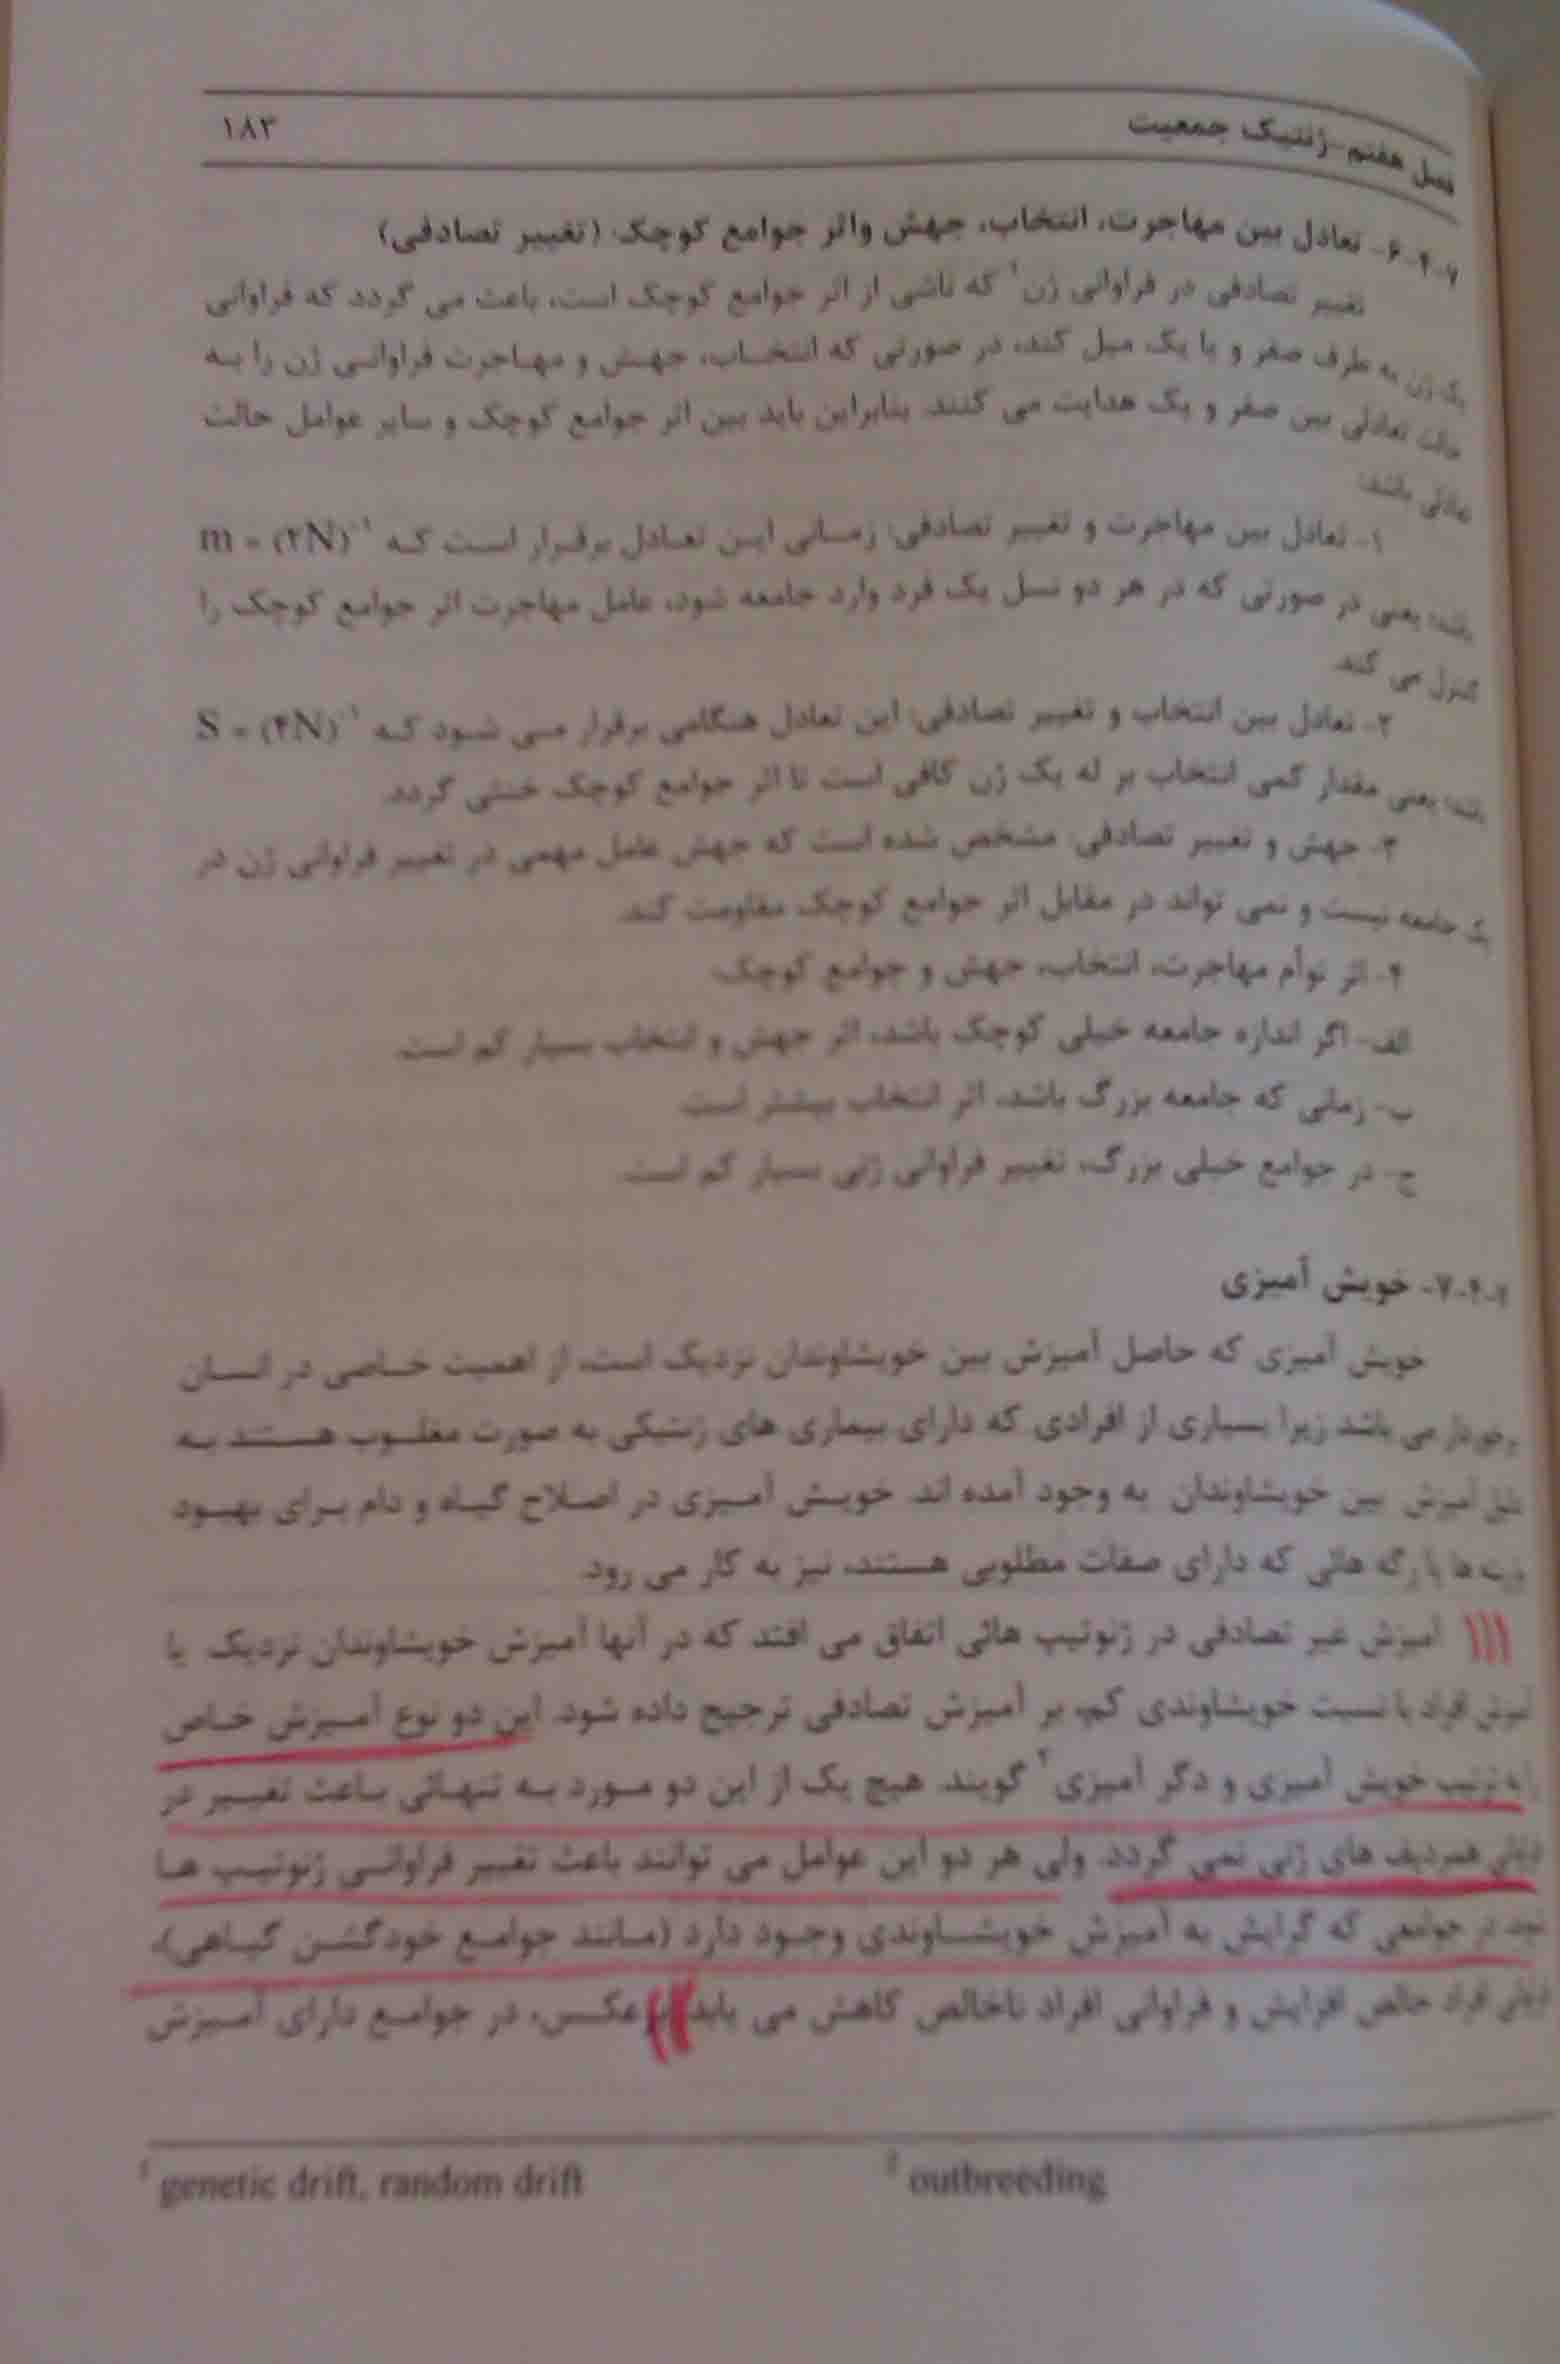 فصل هفتم-ژنتیک جمعیت ۱۸۳
۷-۴-۶- تعادل بین مهاجرت، انتخاب، جهش واثر جوامع کوچک (تغییر تصادفی)
تغییر تصادفی در فراوانی ژن۱ که ناشی از اثر جوامع کوچک است، باعث می گردد که فراوانی
یک ژن به طرف صفر و یا یک میل کند، در صورتی که انتخـاب، جهـش و مهـاجرت فراوانـی ژن را بـه
حالت تعادلی بین صفر و یک هدایت می کنند. بنابراین باید بین اثر جوامع کوچک و سایر عوامل حالت
تعادلی باشد:
۱- تعادل بین مهاجرت و تغییر تصادفی: زمـانی ایـن تعـادل برقـرار اسـت کـه m = (۲N)-۱
باشد؛ یعنی در صورتی که در هر دو نسل یک فرد وارد جامعه شود، عامل مهاجرت اثر جوامع کوچک را
کنترل می کند.
۲- تعادل بین انتخاب و تغییر تصادفی: این تعادل هنگامی برقرار مـی شـود کـه S = (۴N)-۱
باشد؛ یعنی مقدار کمی انتخاب بر له یک ژن کافی است تا اثر جوامع کوچک خنثی گردد.
۳- جهش و تغییر تصادفی: مشخص شده است که جهش عامل مهمی در تغییر فراوانی ژن در
یک جامعه نیست و نمی تواند در مقابل اثر جوامع کوچک مقاومت کند.
۴- اثر توأم مهاجرت، انتخاب، جهش و جوامع کوچک:
الف- اگر اندازه جامعه خیلی کوچک باشد، اثر جهش و انتخاب بسیار کم است.
ب- زمانی که جامعه بزرگ باشد، اثر انتخاب بیشتر است.
ج- در جوامع خیلی بزرگ، تغییر فراوانی ژنی بسیار کم است.
۷-۴-۷- خویش آمیزی
خویش آمیزی که حاصل آمیزش بین خویشاوندان نزدیک است، از اهمیت خـاصی در انسـان
برخوردار می باشد زیرا بسیاری از افرادی که دارای بیماری های ژنتیکی به صورت مغلـوب هسـتند بـه
آمیزش بین خویشاوندان به وجود آمده اند. خویـش آمـیزی در اصـلاح گیـاه و دام بـرای بهبـود
ها یا رگه هائی که دارای صفات مطلوبی هسـتند، نیز به کار می رود.
آمیزش غیر تصادفی در ژنوتیپ هائی اتفاق می افتد که در آنها آمیزش خویشاوندان نزدیک یا
آمیزش افراد با نسبت خویشاوندی کم، بر آمیزش تصادفی ترجیح داده شود. این دو نوع آمـیزش خـاص
را به ترتیب خویش آمیزی و دگر آمیزی۲ گویند. هیچ یک از این دو مـورد بـه تنهـائی بـاعث تغیـیر در
فراوانی همردیف های ژنی نمی گردد. ولی هر دو این عوامل می توانند باعث تغییر فراوانـی ژنوتیـپ هـا
شوند. در جوامعی که گرایش به آمیزش خویشـاوندی وجـود دارد (مـانند جوامـع خودگشـن گیـاهی)،
فراوانی افراد خالص افزایش و فراوانی افراد ناخالص کاهش می یابد. برعکـس، در جوامـع دارای آمـیزش
1 genetic drift, random drift 2 outbreeding